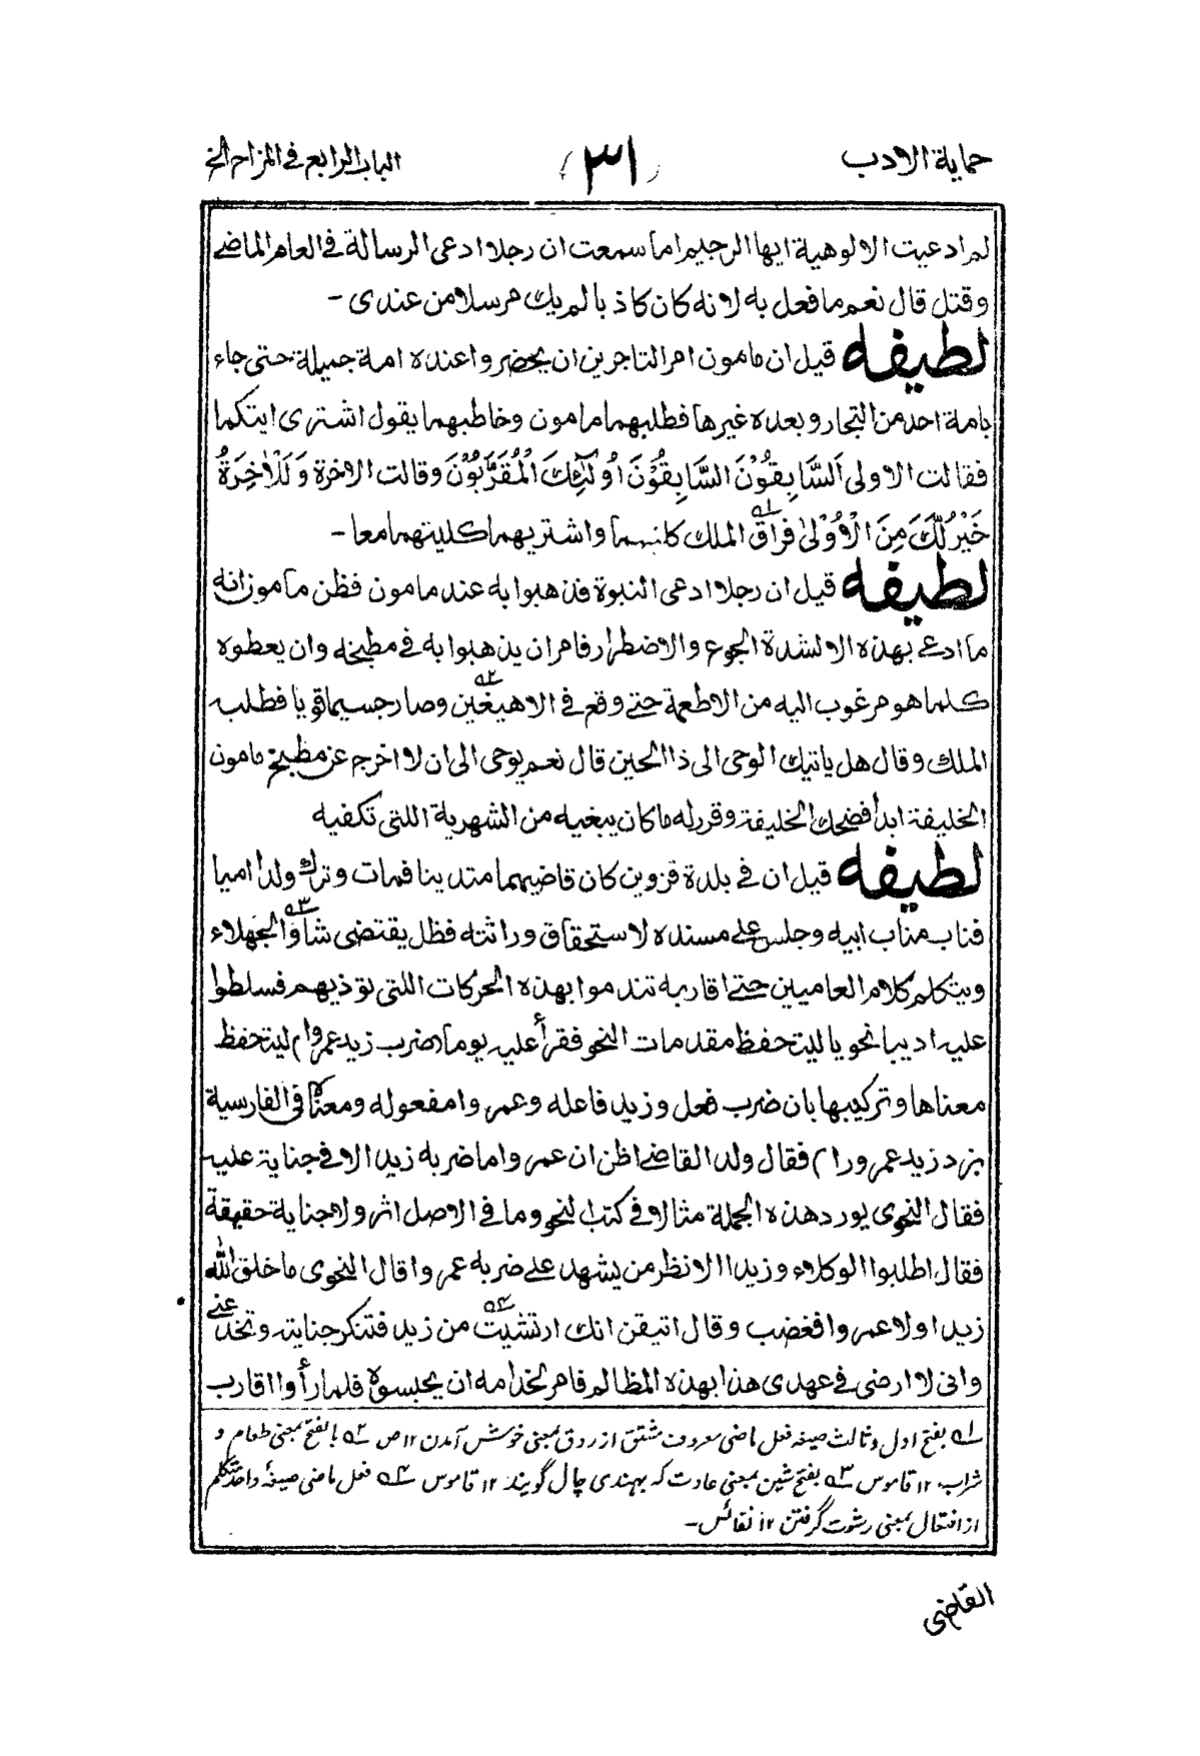 حماية الادب
٣١
الباب الرابع فى المزاح الخ
لم ادعيت الالوهية ايها الرجيم اما سمعت ان رجلا ادعى الرسالة فى العام الماضے
وقتل قال نعم ما فعل به لانه كان كاذبا لم يك مرسلا من عندى -
لطيفه قيل ان مامون امر التاجرين ان يحضروا عنده امة جميلة حتى جاء
بامة احد من التجار وبعده غيرها فطلبهما مامون وخاطبهما يقول اشترى ايتكما
فقالت الاولى اَلسَّابِقُوْنَ السَّابِقُوْنَ اُولٰٓئِكَ الْمُقَرَّبُوْنَ وقالت الاخرة وَلَلْاٰخِرَةُ
خَيْرٌ لَّكَ مِنَ الْاُوْلىٰ فراق۱ه الملك كلتيهما واشتريهما كليتهما معا -
لطيفه قيل ان رجلا ادعى النبوة فذهبوا به عند مامون فظن مامون انه
ما ادعے بهذه الا لشدة الجوع والاضطرار فامر ان يذهبوا به فے مطبخه وان يعطوه
كلما هو مرغوب اليه من الاطعمة حتے وقع فے الاهيغين۲ه وصار جسيما قويا فطلبه
الملك وقال هل ياتيك الوحى الى ذا الحين قال نعم يوحى الى ان لا اخرج عن مطبخ مامون
الخليفة ابدا فضحك الخليفة وقرر له ما كان يبغيه من الشهرية اللتى تكفيه
لطيفه قيل ان فے بلدة قزوين كان قاضيهما متدينا فمات وترك ولدا اميا
فناب مناب ابيه وجلس علے مسنده لاستحقاق وراثته فظل يقتضى شأو۳ه الجهلاء
ويتكلم كلام العاميين حتے اقاربه تندموا بهذه الحركات اللتى توذيهم فسلطوا
عليه اديبا نحويا ليتحفظ مقدمات النحو فقرأ عليه يوما ضرب زيد عمروام ليتحفظ
معناها وتركيبها بان ضرب فعل وزيد فاعله وعمروا مفعوله ومعناه فى الفارسية
بزد زيد عمرو رام فقال ولد القاضے اظن ان عمروا ما ضربه زيد الا فے جناية عليه
فقال النحوى يورد هذه الجملة مثالا فے كتب النحو وما فے الاصل اثر ولا جناية حقيقة
فقال اطلبوا الوكلاء وزيدا الانظر من يشهد علے ضربه عمروا قال النحوى ما خلق الله
زيدا ولا عمروا فغضب وقال اتيقن انك ارتشيت۴ه من زيد فتنكر جنايته وتخدعنے
وانى لا ارضى فے عهدى هذا بهذه المظالم فامر لخدامه ان يحبسوه فلما رأوا اقارب
۱ه بفتح اول وثالث صيغه فعل ماضى معروف مشتق از روق بمعنى خوش آمدن ۱۲ ص ۲ه بالفتح بمعنى طعام و
شراب ۱۲ قاموس ۳ه بفتح شين بمعنى عادت كه بهندى چال گويند ۱۲ قاموس ۴ه فعل ماضى صيغۂ واحد متكلم
از افتعال بمعنى رشوت گرفتن ۱۲ نفائس -
القاضى